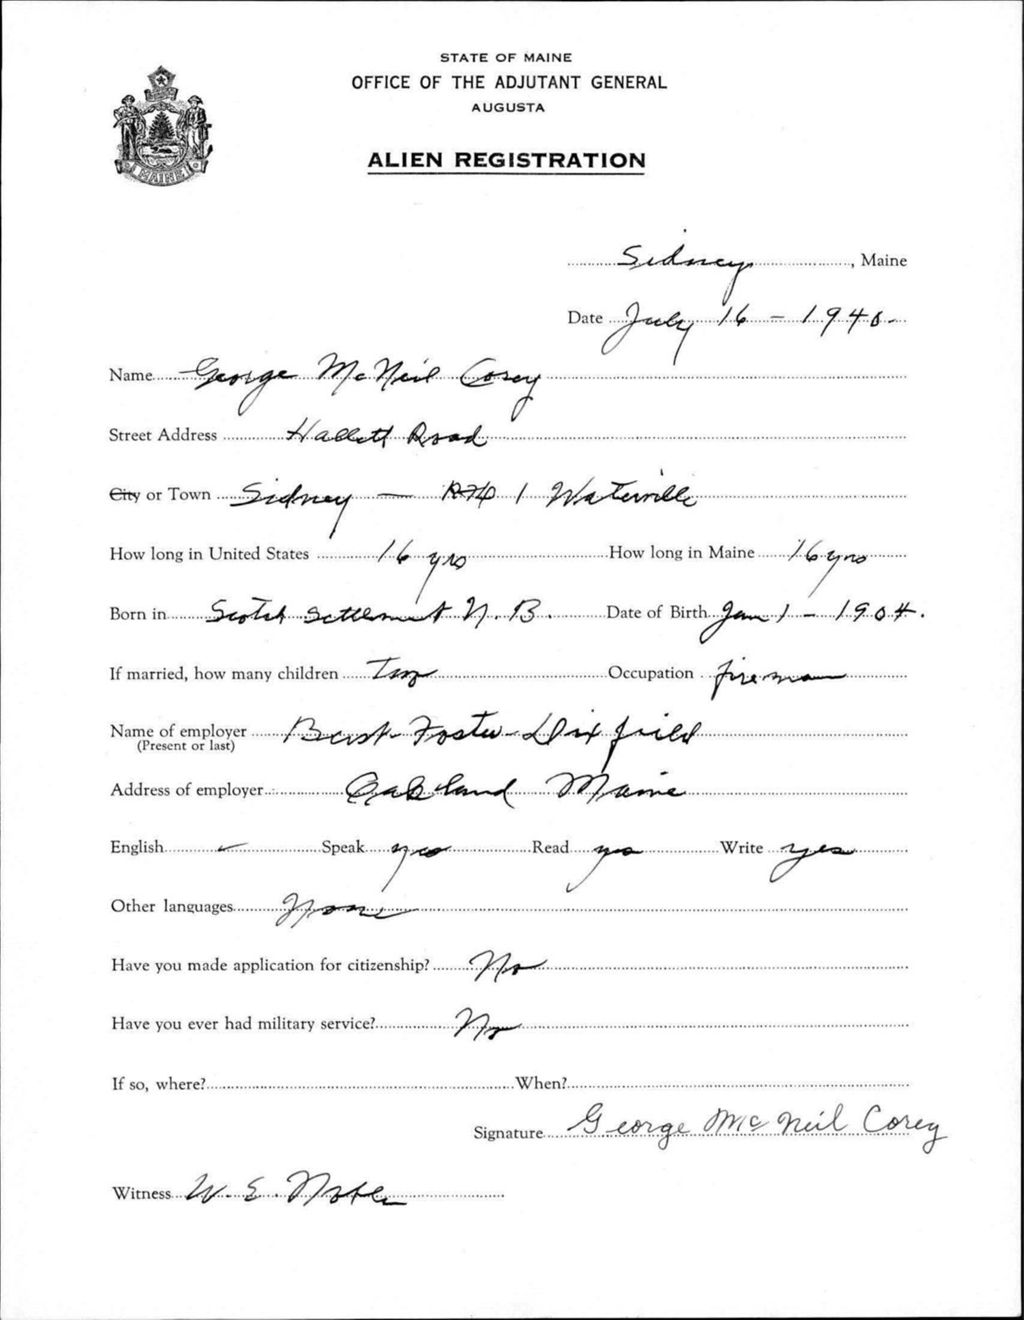 STATE OF MAINE
OFFICE OF THE ADJUTANT GENERAL
AUGUSTA
MAINE
ALIEN REGISTRATION
Sidney, Maine
Date July 16 - 1940
Name George McNeil Corey
Street Address Hallett Road
City or Town Sidney — 1 Waterville
How long in United States 16 yrs How long in Maine 16 yrs
Born in Scotch Settlement N. B. Date of Birth Jan 1 - 1904.
If married, how many children Two Occupation fireman
Name of employer Foster - Dixfield
(Present or last)
Address of employer Oakland Maine
English ✓ Speak yes Read yes Write yes
Other languages None
Have you made application for citizenship? No
Have you ever had military service? No
If so, where? When?
Signature George McNeil Corey
Witness W. E.